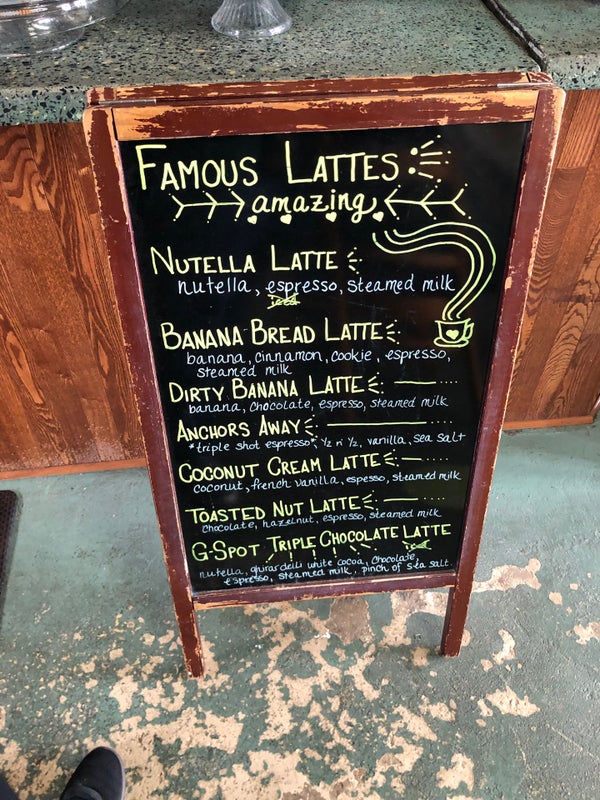 FAMOUS LATTES
amazing
NUTELLA LATTE
nutella, espresso, steamed milk
iced
BANANA BREAD LATTE
banana, cinnamon, cookie, espresso,
steamed milk
DIRTY BANANA LATTE
banana, chocolate, espresso, steamed milk
ANCHORS AWAY
*triple shot espresso*, ½ n ½, vanilla, sea salt
COCONUT CREAM LATTE
coconut, french vanilla, espesso, steamed milk
TOASTED NUT LATTE
chocolate, hazelnut, espresso, steamed milk
G-SPOT TRIPLE CHOCOLATE LATTE
iced
nutella, ghirardelli white cocoa, chocolate,
espresso, steamed milk, pinch of sea salt.